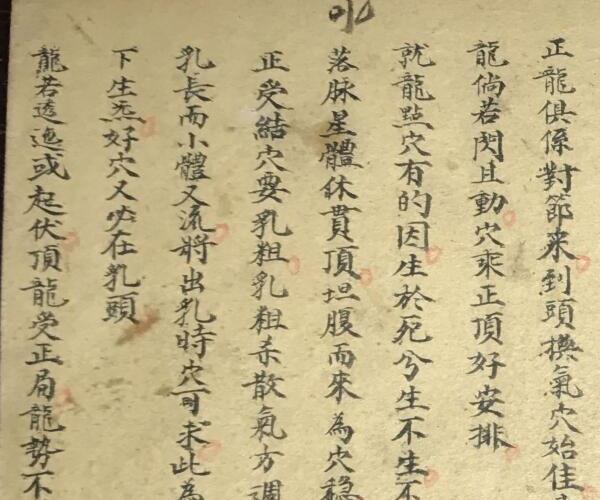 正龍俱係對節來到頭撲氣穴始佳
龍倘若閃且動穴乘正頂好安排
就龍點穴有的因生於死兮生不生不
落脉星體休貫頂坦腹而來為穴穩
正受結穴要乳粗乳粗杀散氣方調
乳長而小體又流將出乳時穴可求此為
下生炁好穴又必在乳頭
龍若透迤或起伏頂龍受正局龍勢不